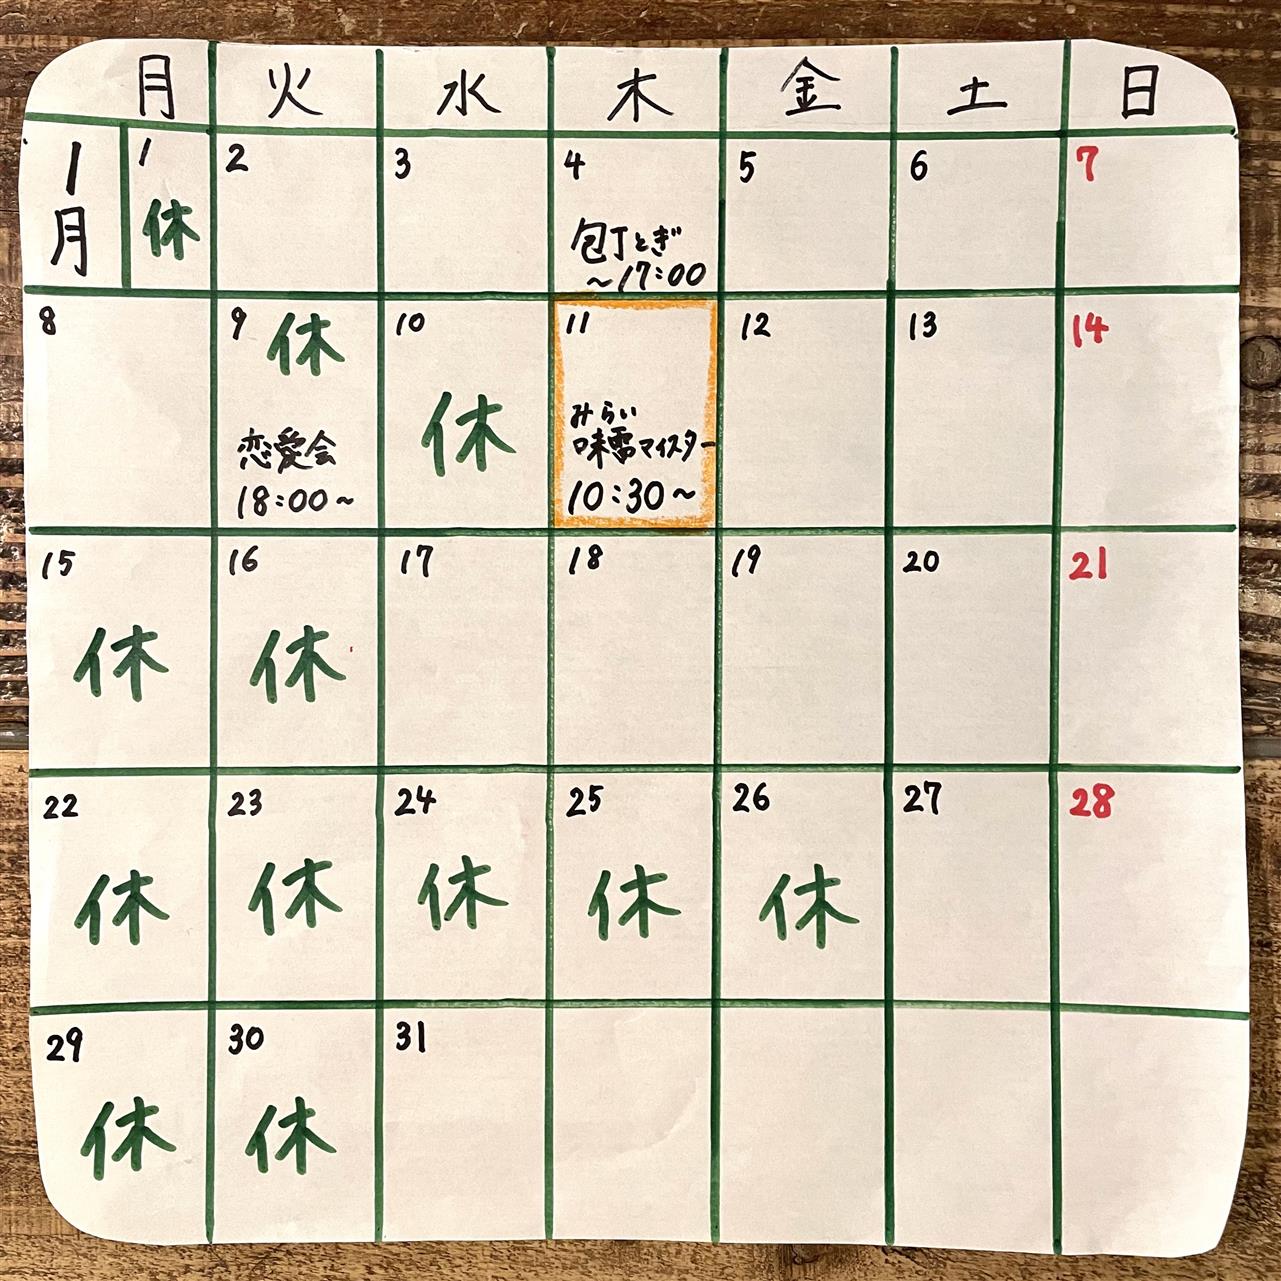 月 火 水 木 金 土 日
1月
1 2 3 4 5 6 7
休
包丁とぎ
〜17:00
8 9 10 11 12 13 14
休
恋愛会
18:00〜
休
みらい
味雷マイスター
10:30〜
15 16 17 18 19 20 21
休 休
22 23 24 25 26 27 28
休 休 休 休 休
29 30 31
休 休